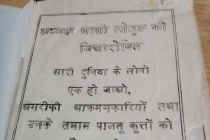 अध्यक्ष
विचारोक्ति
सारी दुनिया के लोगों
एक हो जाओ,
अमरीकी आक्रमणकारियों तथा
उनके तमाम पालतू कुत्तों को